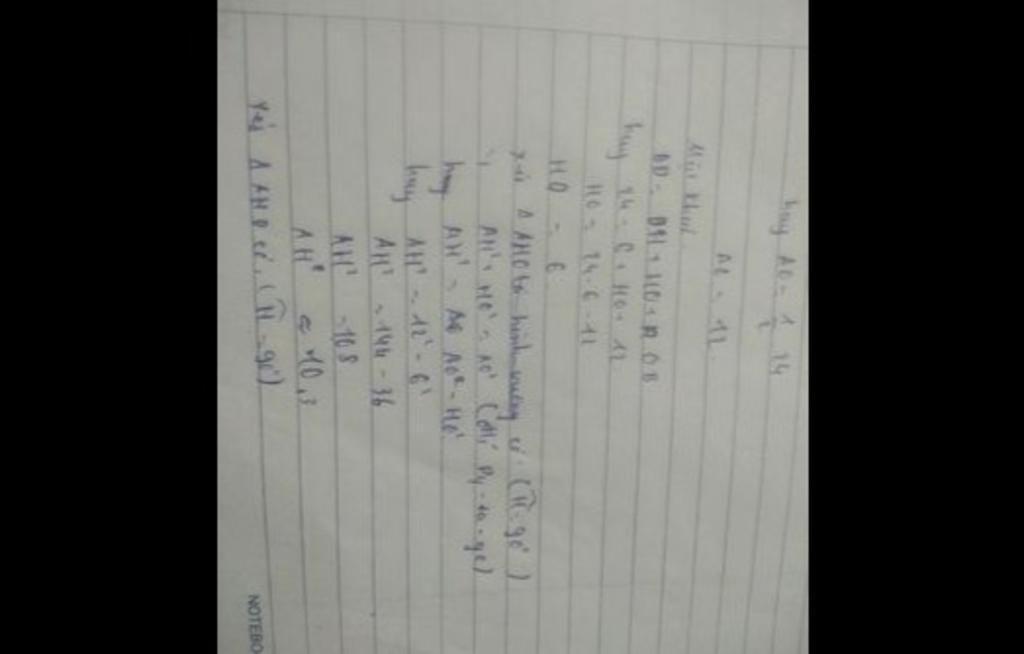 hay AO = 1/2 24
AO = 12
Mặt khác
BD = DH + HO + OB
hay 24 = 6 + HO + 12
HO = 24 - 6 - 12
HO = 6
Xét Δ AHO có (Ĥ = 90°)
AH² + HO² = AO² (Py-ta-go)
hay AH² = AO² - HO²
hay AH² = 12² - 6²
AH² = 144 - 36
AH² = 108
AH ≈ 10,3
Xét Δ AHD có (Ĥ = 90°)
NOTEBO